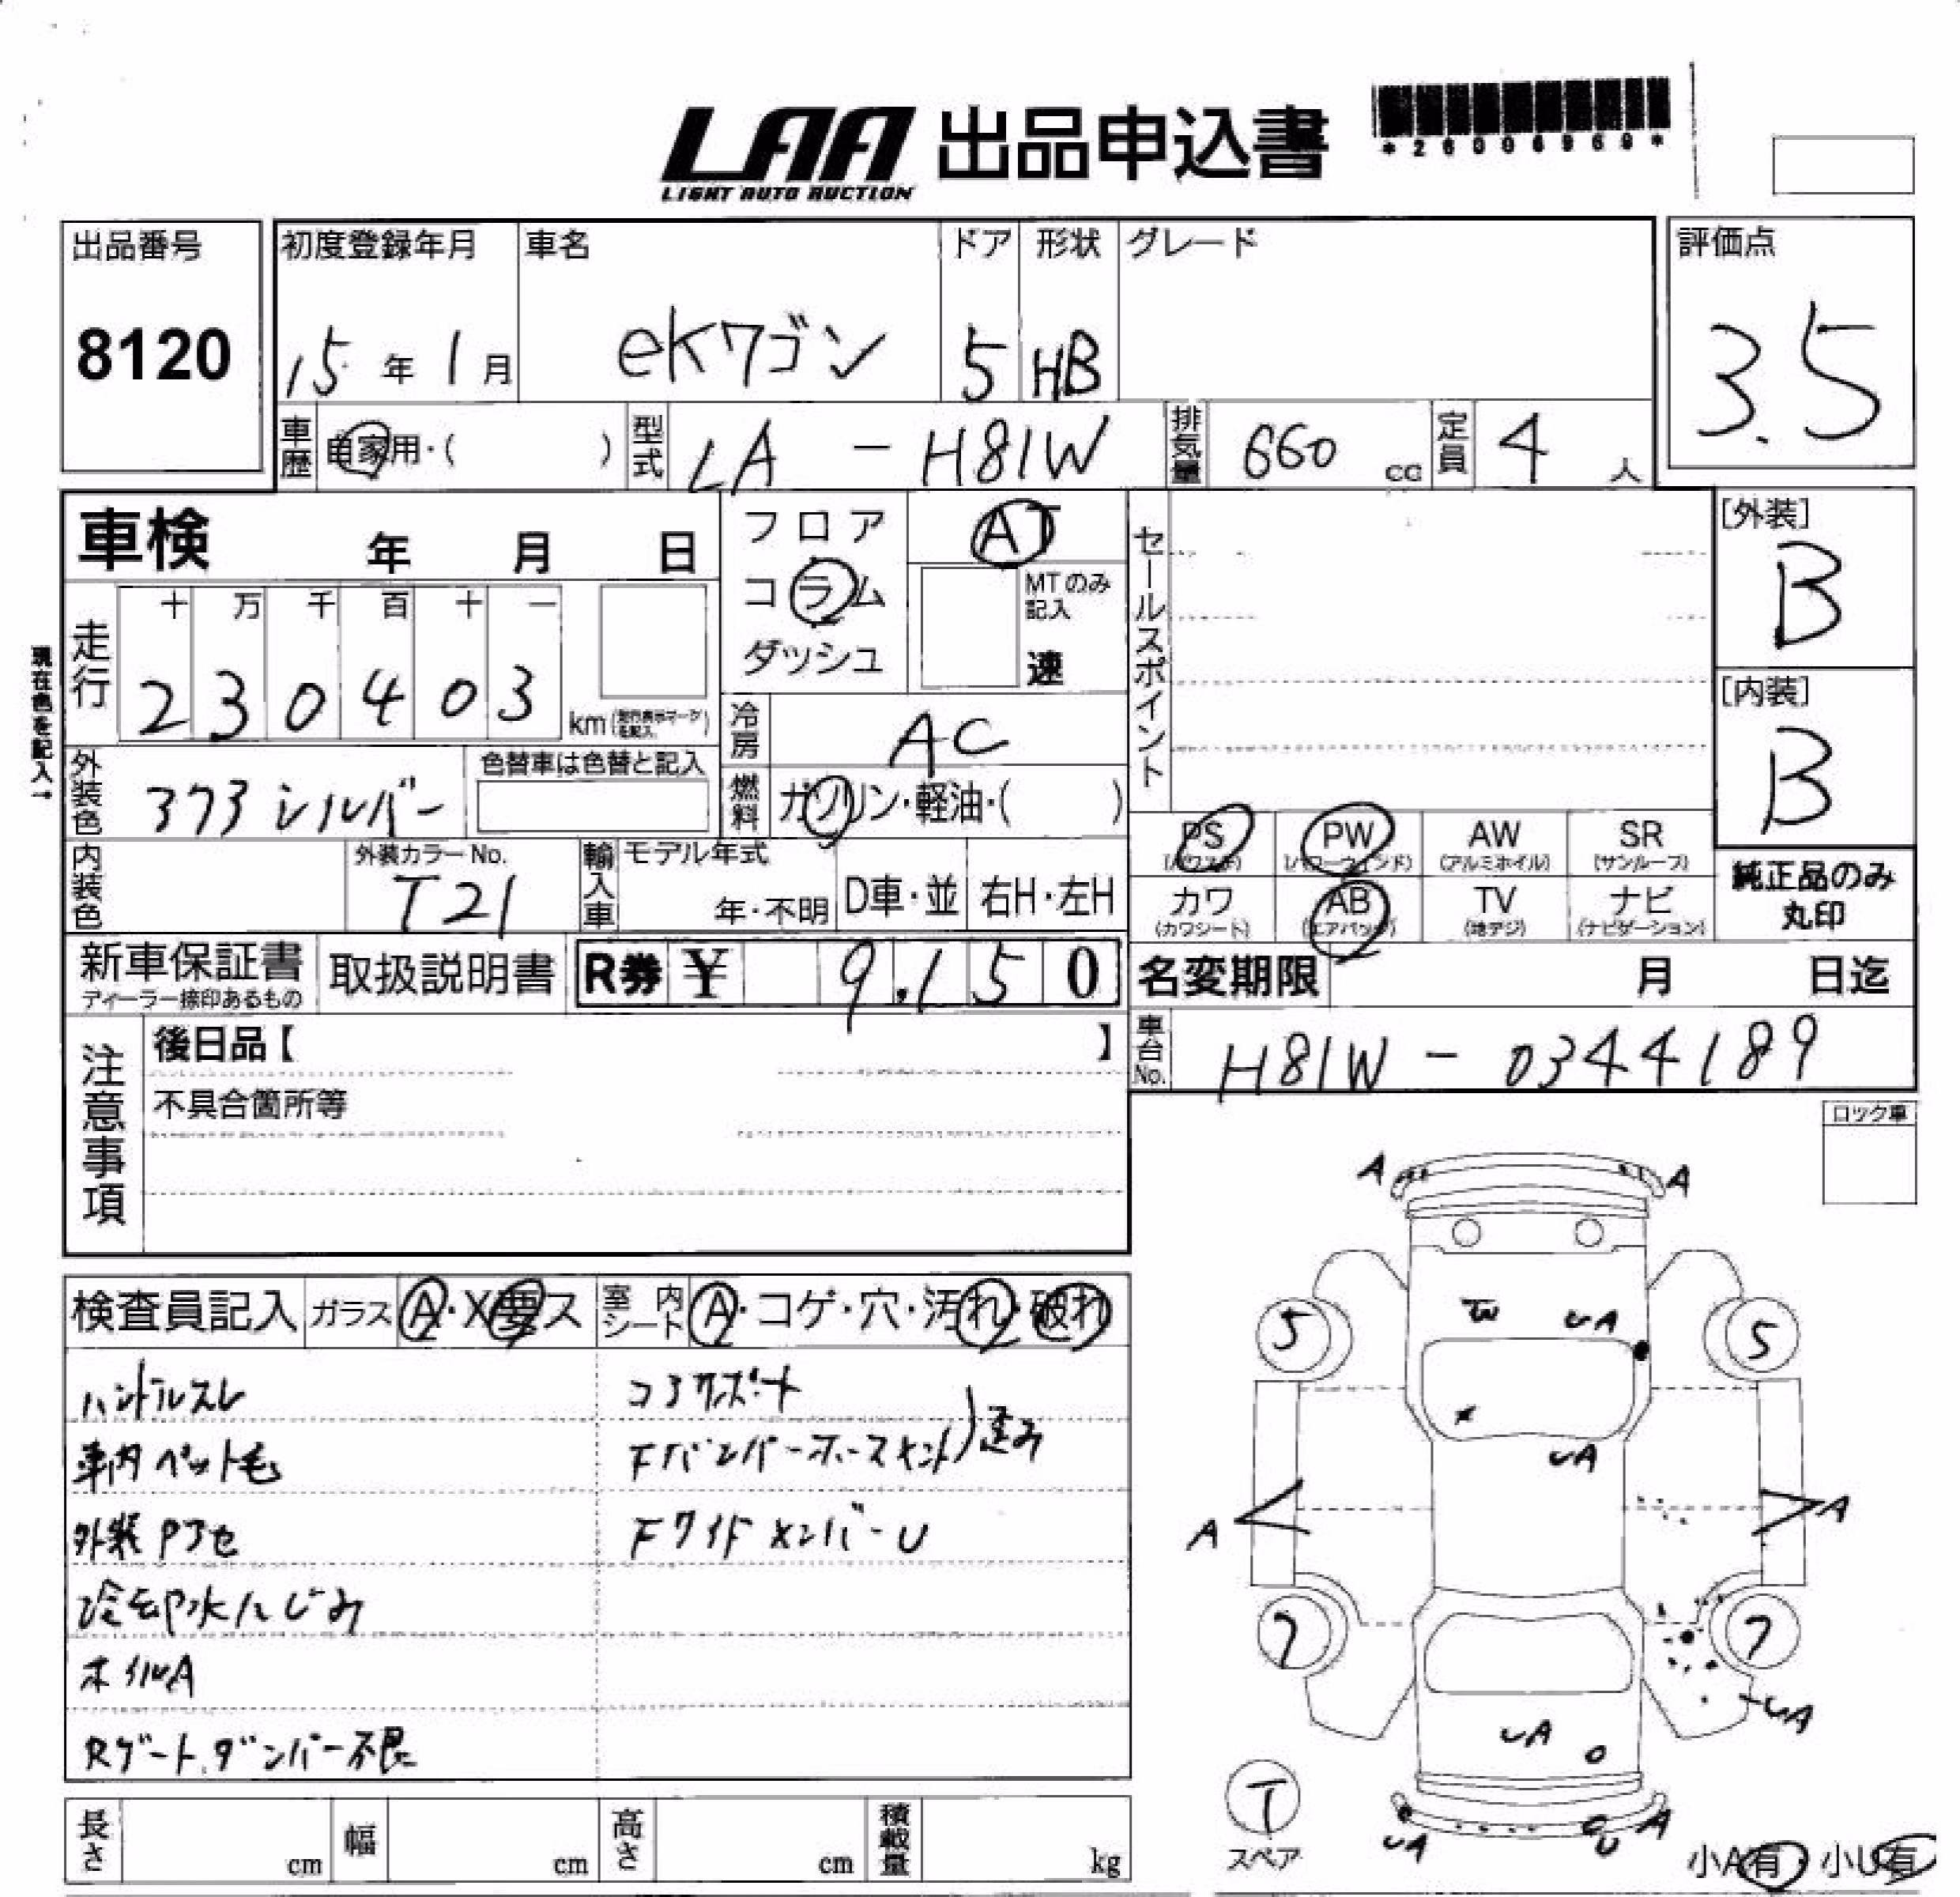 LAA 出品申込書
LIGHT AUTO AUCTION
*26006969*
出品番号
8120
初度登録年月
15年1月
車名
eKワゴン
ドア
5
形状
HB
グレード
評価点
3.5
車歴
自家用・( )
型式
LA - H81W
排気量
660 cc
定員
4人
車検 年 月 日
フロア
コラム
ダッシュ
AT
MTのみ記入
速
セールスポイント
[外装]
B
[内装]
B
現在色を記入→
走行
十 万 千 百 十 一
2 3 0 4 0 3
km
冷房
AC
外装色
373 シルバー
色替車は色替と記入
燃料
ガソリン・軽油・( )
PS
(パワステ)
PW
(パワーウィンド)
AW
(アルミホイル)
SR
(サンルーフ)
カワ
(カワシート)
AB
(エアバッグ)
TV
(地デジ)
ナビ
(ナビゲーション)
純正品のみ
丸印
内装色
外装カラーNo.
T21
輸入車
モデル年式
年・不明
D車・並
右H・左H
新車保証書
ディーラー捺印あるもの
取扱説明書
R券 ¥ 9.150
名変期限 月 日迄
車台No.
H81W - 0344189
注意事項
後日品【 】
不具合箇所等
ロック車
検査員記入
ガラス A・X要ス
室内シート A・コゲ・穴・汚れ・破れ
ハンドルスレ
車内ペット毛
外装Pアセ
冷却水ニじみ
ホイルA
Rゲートダンパー不良
コアサポート
Fバンパーホースメント)歪み
FワイドメンバーU
A A
5 5
W UA
×
UA
A A
7 7
UA
UA
T
スペア
UA U A
小A有・小U有
長さ cm
幅 cm
高さ cm
積載量 kg